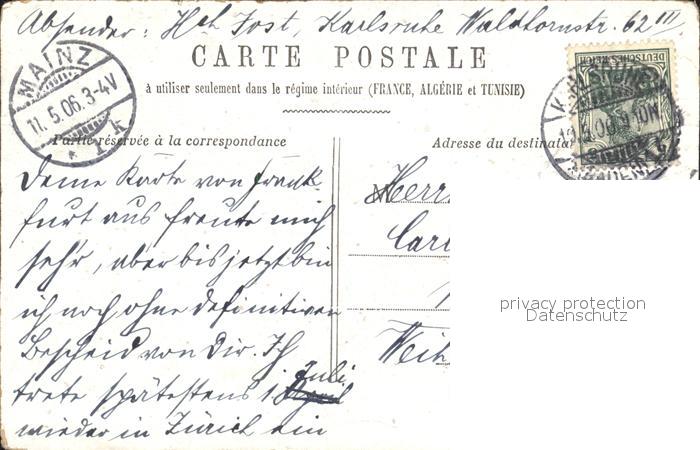 Absender: Hch Jost, Karlsruhe Waldhornstr. 62 III
CARTE POSTALE
à utiliser seulement dans le régime intérieur (FRANCE, ALGÉRIE et TUNISIE)
MAINZ
11.5.06.3-4V
DEUTSCHES REICH
KARLSRUHE
Partie réservée à la correspondance
Adresse du destinata
Deine Karte von Frank-
furt aus freute mich
sehr, aber bis jetzt bin
ich noch ohne definitiven
Bescheid von Dir. Ich
trete spätestens i. Juli
wieder in Zürich ein
Herr
Carl
privacy protection
Datenschutz